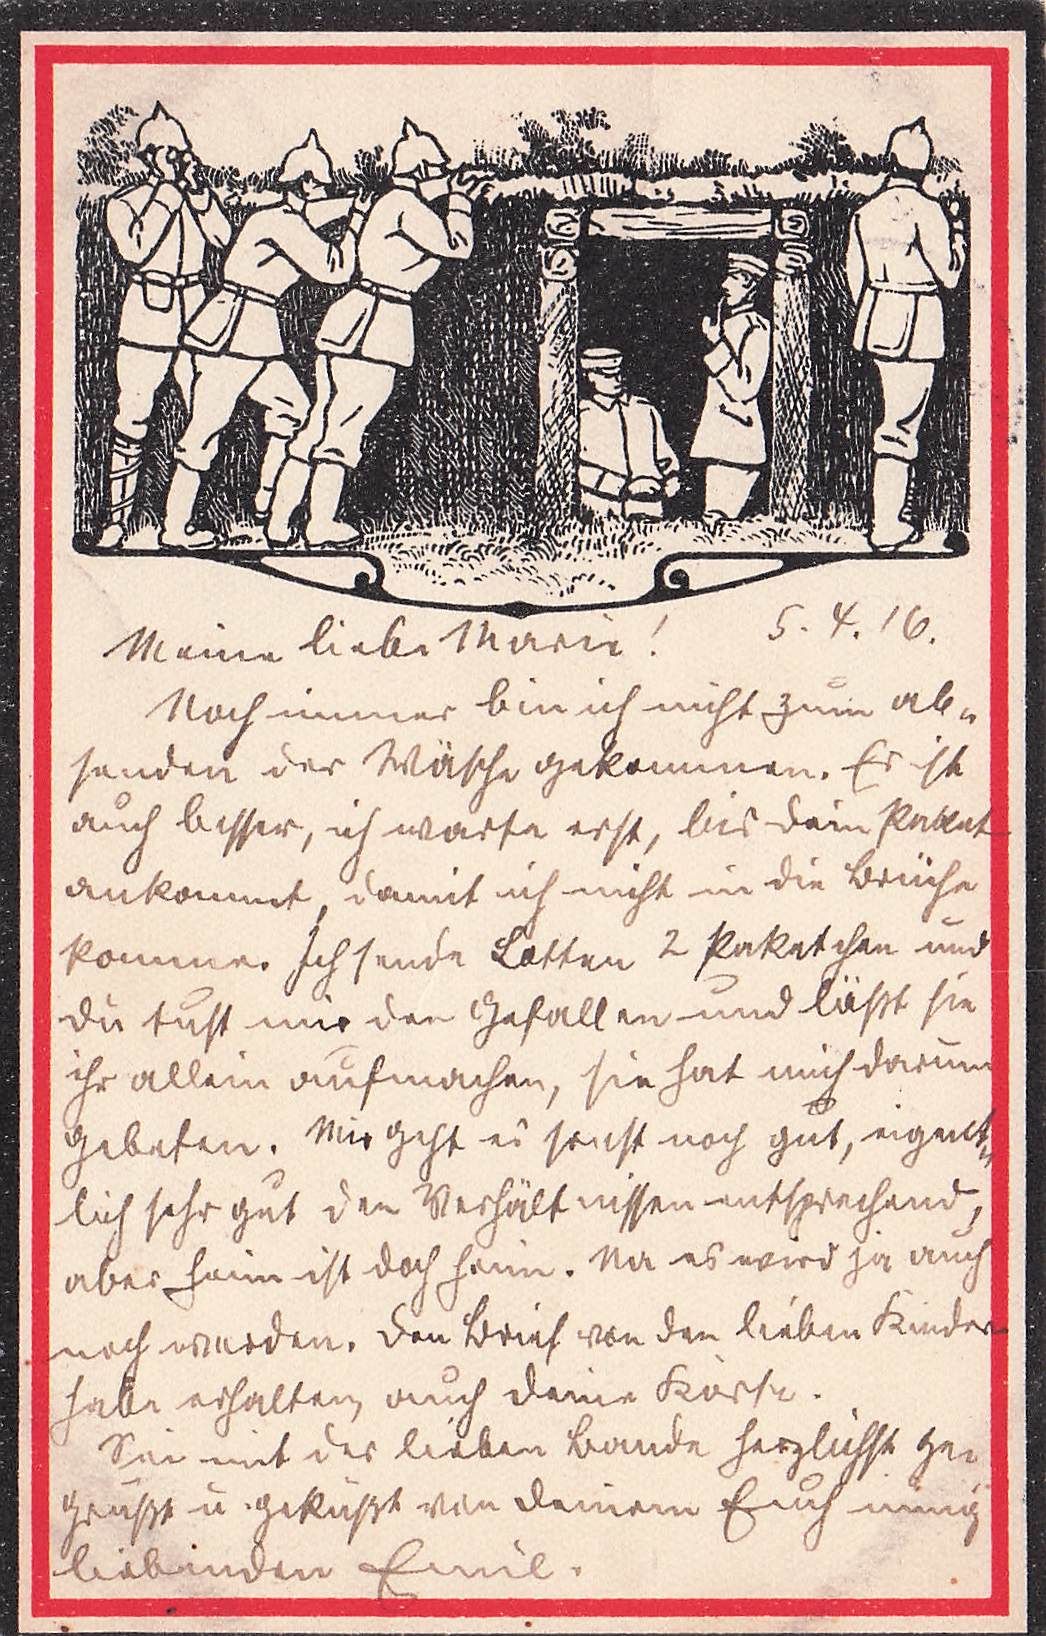 5. 4. 16.
Meine liebe Marie!
Noch immer bin ich nicht zum ab-
senden der Wäsche gekommen. Es ist
auch besser, ich warte erst, bis dein Paket
ankommt, damit ich nicht in die Brüche
komme. Ich sende Lotten 2 Paketchen und
du tust mir den Gefallen und läßt sie
ihr allein aufmachen, sie hat mich darum
gebeten. Mir geht es sonst noch gut, eigent-
lich sehr gut den Verhältnissen entsprechend,
aber heim ist doch heim. Na es wird ja auch
noch werden. Den Brief von den lieben Kinder
habe erhalten, auch deine Karte.
Sei mit der lieben Bande herzlichst ge-
grüßt u. geküßt von deinem Euch innig
liebenden Emil.